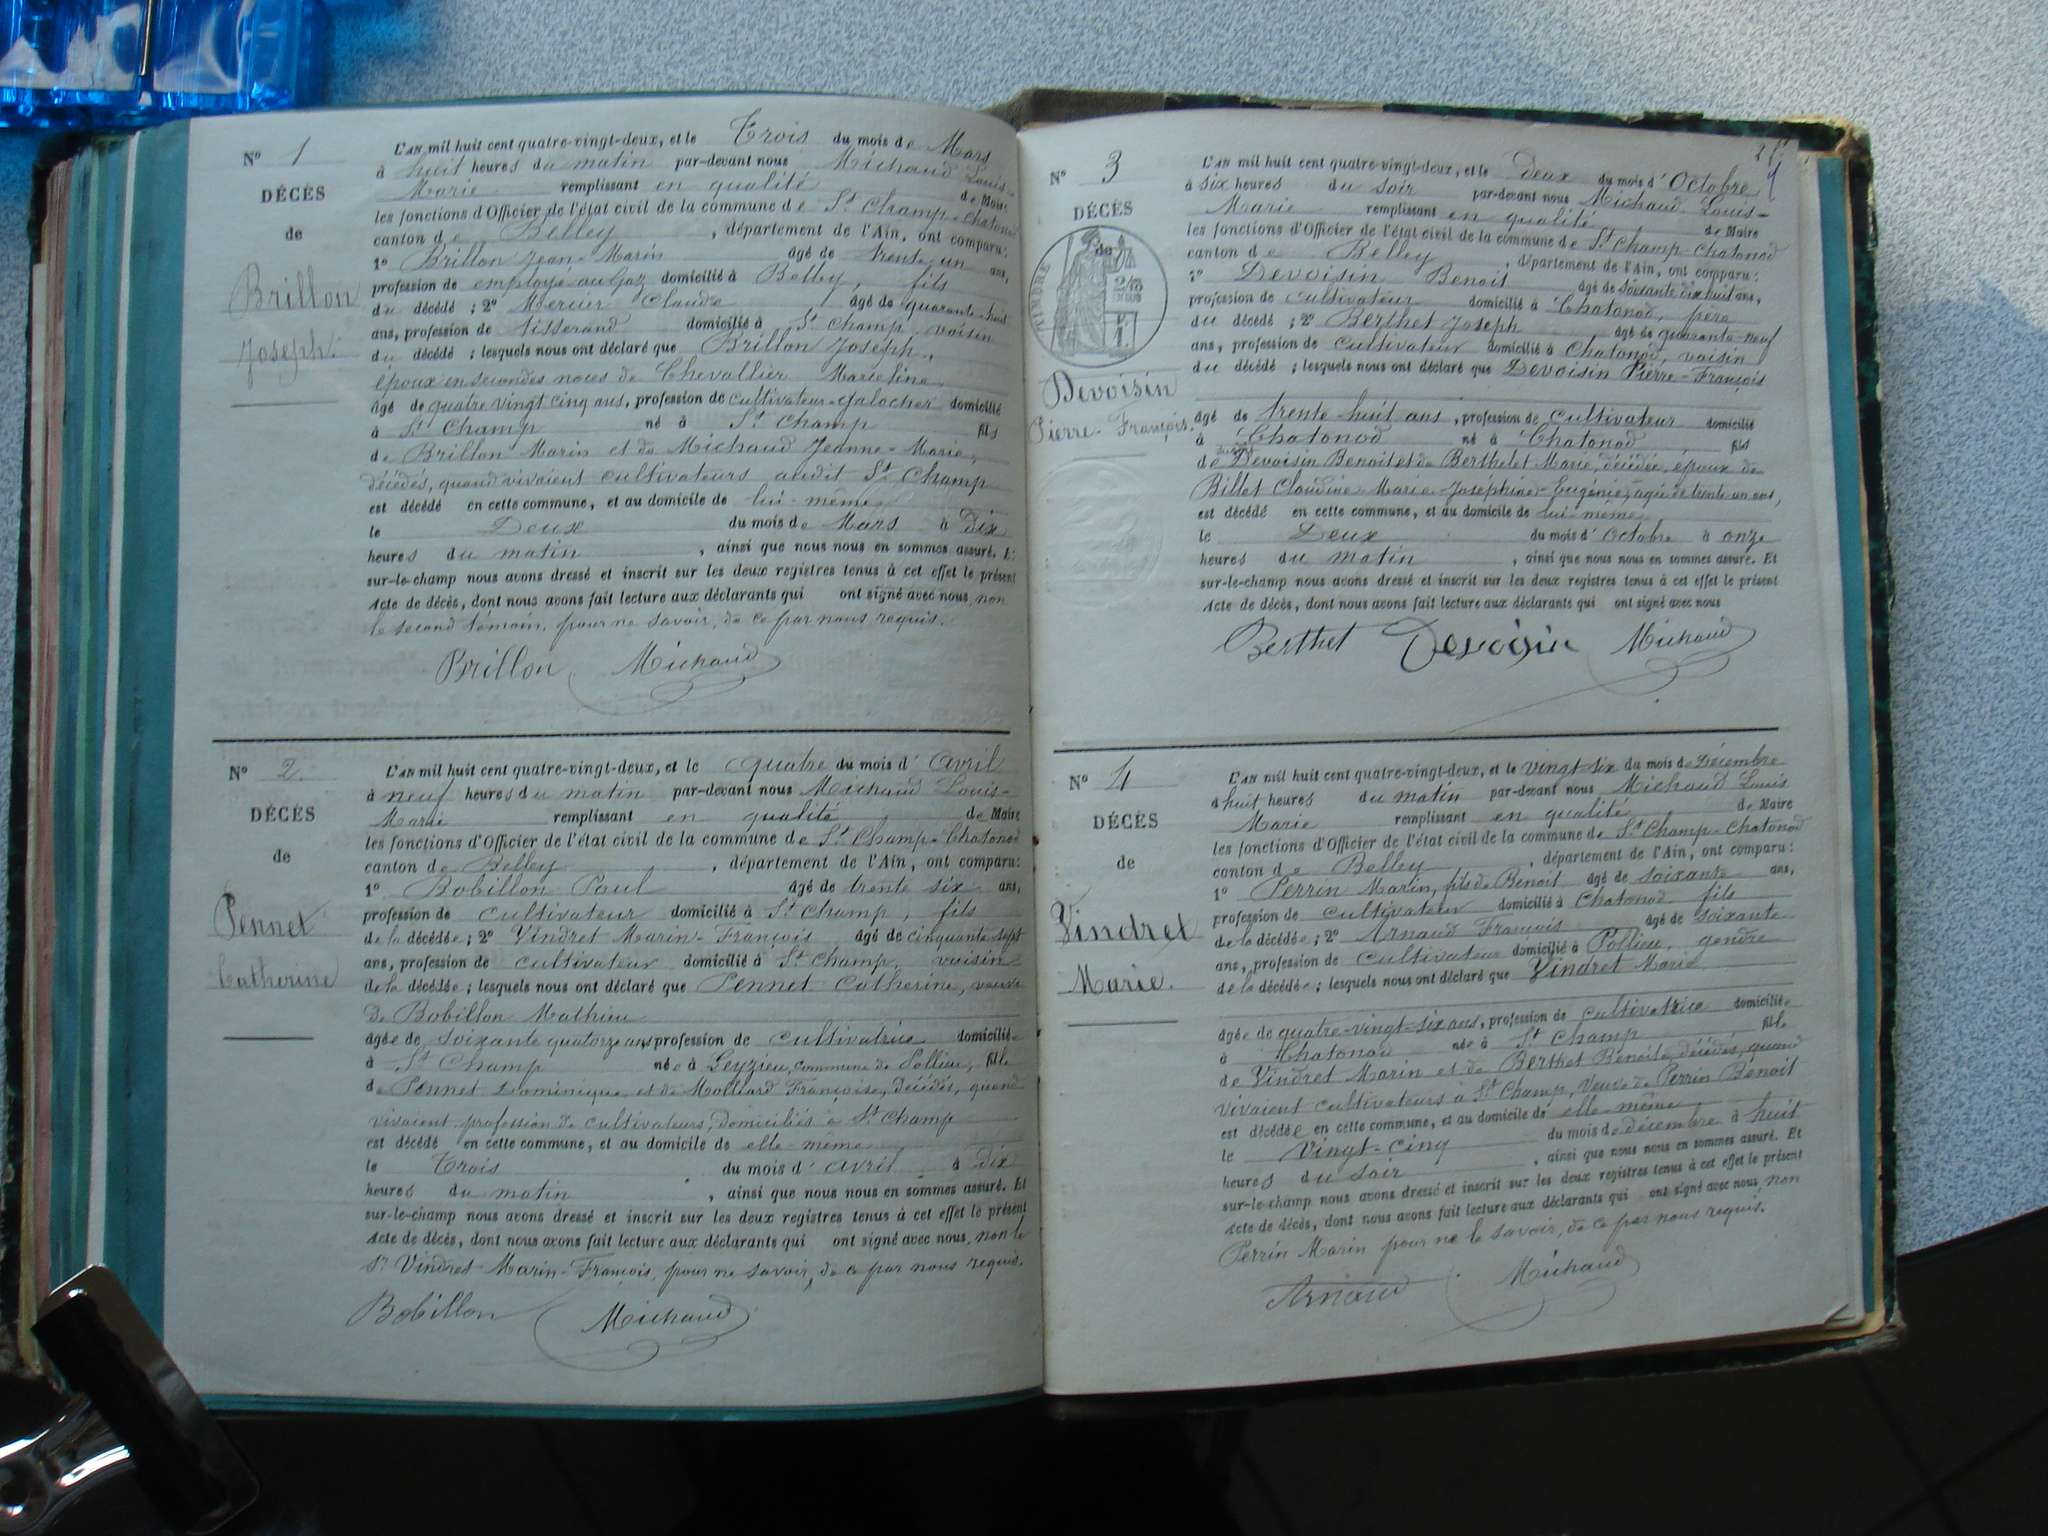 N° 1
DÉCÈS
de
Brillon
Joseph.
L'AN mil huit cent quatre-vingt-deux, et le Trois du mois de Mars
à huit heures du matin par-devant nous Michaud Louis-
Marie remplissant en qualité de Maire
les fonctions d'Officier de l'état civil de la commune de St Champ-Chatonod
canton de Belley, département de l'Ain, ont comparu:
1° Brillon Jean-Marin âgé de trente-un ans,
profession de employé au Gaz domicilié à Belley, fils
du décédé ; 2° Mercier Claude âgé de quarante-huit
ans, profession de tisserand domicilié à St Champ, voisin
du décédé ; lesquels nous ont déclaré que Brillon Joseph,
époux en secondes noces de Chevallier Marceline,
âgé de quatre vingt cinq ans, profession de cultivateur-galocher domicilié
à St Champ né à St Champ fils
de Brillon Marin et de Michaud Jeanne-Marie,
décédés, quand vivaient cultivateurs audit St Champ
est décédé en cette commune, et au domicile de lui-même
le Deux du mois de Mars à Dix
heures du matin, ainsi que nous nous en sommes assuré. Et
sur-le-champ nous avons dressé et inscrit sur les deux registres tenus à cet effet le présent
Acte de décès, dont nous avons fait lecture aux déclarants qui ont signé avec nous, non
le second témoin, pour ne savoir, de ce par nous requis.
Brillon Michaud
N° 2
DÉCÈS
de
Pennet
Catherine
L'AN mil huit cent quatre-vingt-deux, et le quatre du mois d'avril
à neuf heures du matin par-devant nous Michaud Louis-
Marie remplissant en qualité de Maire
les fonctions d'Officier de l'état civil de la commune de St Champ-Chatonod
canton de Belley, département de l'Ain, ont comparu:
1° Bobillon Paul âgé de trente six ans,
profession de cultivateur domicilié à St Champ, fils
de la décédée ; 2° Vindret Marin-François âgé de cinquante sept
ans, profession de cultivateur domicilié à St Champ, voisin
de la décédée ; lesquels nous ont déclaré que Pennet Catherine, veuve
de Bobillon Mathieu
âgée de soixante quatorze ans profession de cultivatrice domiciliée
à St Champ née à Leyzieu, commune de Pollieu, fille
de Pennet Dominique et de Molliard Françoise, décédés, quand
vivaient profession de cultivateurs, domiciliés à St Champ
est décédé en cette commune, et au domicile de elle-même
le Trois du mois d'avril à Dix
heures du matin, ainsi que nous nous en sommes assuré. Et
sur-le-champ nous avons dressé et inscrit sur les deux registres tenus à cet effet le présent
Acte de décès, dont nous avons fait lecture aux déclarants qui ont signé avec nous, non le
Sr Vindret Marin-François, pour ne savoir, de ce par nous requis.
Bobillon Michaud
N° 3
DÉCÈS
de
TIMBRE
Devoisin
Pierre-François.
L'AN mil huit cent quatre-vingt-deux, et le Deux du mois d'Octobre
à six heures du soir par-devant nous Michaud Louis-
Marie remplissant en qualité de Maire
les fonctions d'Officier de l'état civil de la commune de St Champ-Chatonod
canton de Belley, département de l'Ain, ont comparu:
1° Devoisin Benoit âgé de soixante dix huit ans,
profession de cultivateur domicilié à Chatonod, père
du décédé ; 2° Berthet Joseph âgé de quarante-neuf
ans, profession de cultivateur domicilié à Chatonod, voisin
du décédé ; lesquels nous ont déclaré que Devoisin Pierre-François
âgé de trente-huit ans, profession de cultivateur domicilié
à Chatonod né à Chatonod fils
de Devoisin Benoit et de Berthelet Marie, décédée, époux de
Billet Claudine-Marie-Joséphine-Eugénie, agée de trente un ans,
est décédé en cette commune, et au domicile de lui même
le Deux du mois d'Octobre à onze
heures du matin, ainsi que nous nous en sommes assuré. Et
sur-le-champ nous avons dressé et inscrit sur les deux registres tenus à cet effet le présent
Acte de décès, dont nous avons fait lecture aux déclarants qui ont signé avec nous
Berthet Devoisin Michaud
N° 4
DÉCÈS
de
Vindret
Marie.
L'AN mil huit cent quatre-vingt-deux, et le vingt-six du mois de Décembre
à huit heures du matin par-devant nous Michaud Louis
Marie remplissant en qualité de Maire
les fonctions d'Officier de l'état civil de la commune de St Champ-Chatonod
canton de Belley, département de l'Ain, ont comparu:
1° Perrin Marin, fils de Benoit âgé de soixante ans,
profession de cultivateur domicilié à Chatonod fils
de la décédée ; 2° Arnaud François âgé de soixante
ans, profession de cultivateur domicilié à Pollieu, gendre
de la décédée ; lesquels nous ont déclaré que Vindret Marie
âgée de quatre-vingt-six ans, profession de cultivatrice domiciliée
à Chatonod née à St Champ fille
de Vindret Marin et de Berthet Benoite, décédés, quand
vivaient cultivateurs à St Champ, Veuve de Perrin Benoit
est décédée en cette commune, et au domicile de elle-même
le Vingt-cinq du mois de décembre à huit
heures du soir, ainsi que nous nous en sommes assuré. Et
sur-le-champ nous avons dressé et inscrit sur les deux registres tenus à cet effet le présent
Acte de décès, dont nous avons fait lecture aux déclarants qui ont signé avec nous, non
Perrin Marin pour ne le savoir, de ce par nous requis.
Arnaud Michaud